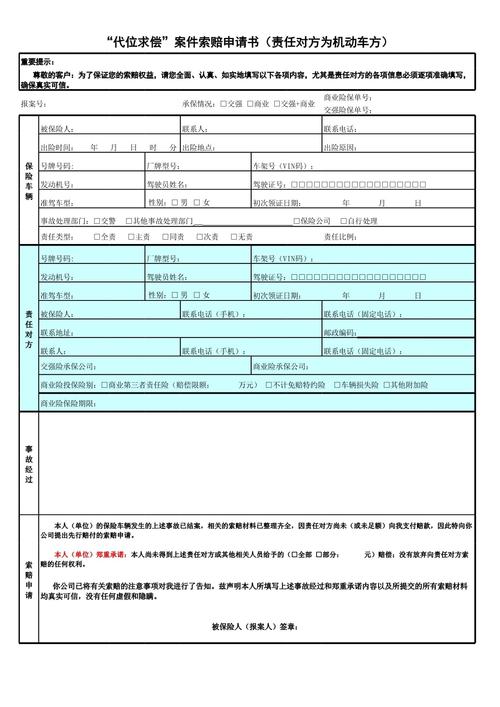 “代位求偿”案件索赔申请书（责任对方为机动车方）
重要提示：
尊敬的客户：为了保证您的索赔权益，请您全面、认真、如实地填写以下各项内容，尤其是责任对方的各项信息必须逐项准确填写，
确保真实可信。
报案号： 承保情况：□交强 □商业 □交强+商业 商业险保单号：
交强险保单号：
保险车辆
被保险人： 联系人： 联系电话：
出险时间： 年 月 日 时 分 出险地点： 出险原因：
号牌号码： 厂牌型号： 车架号（VIN码）：
发动机号： 驾驶员姓名： 驾驶证号：□□□□□□□□□□□□□□□□□□
准驾车型： 性别：□ 男 □ 女 初次领证日期： 年 月 日
事故处理部门：□交警 □其他事故处理部门 □保险公司 □自行处理
责任类型： □全责 □主责 □同责 □次责 □无责 责任比例：
责任对方
号牌号码： 厂牌型号： 车架号（VIN码）：
发动机号： 驾驶员姓名： 驾驶证号：□□□□□□□□□□□□□□□□□□
准驾车型： 性别：□ 男 □ 女 初次领证日期： 年 月 日
被保险人： 联系电话（手机）： 联系电话（固定电话）：
联系地址： 邮政编码：
联系人： 联系电话（手机）： 联系电话（固定电话）：
交强险承保公司： 商业险承保公司：
商业险投保险别：□商业第三者责任险（赔偿限额： 万元） □不计免赔特约险 □车辆损失险 □其他附加险
商业险保险期限：
事故经过
索赔申请
本人（单位）的保险车辆发生的上述事故已结案，相关的索赔材料已整理齐全，因责任对方尚未（或未足额）向我支付赔款，因此特向你
公司提出先行赔付的索赔申请。
本人（单位）郑重承诺：本人尚未得到上述责任对方或其他相关人员给予的（□全部 □部分： 元）赔偿；没有放弃向责任对方索
赔的任何权利。
你公司已将有关索赔的注意事项对我进行了告知。兹声明本人所填写上述事故经过和郑重承诺内容以及所提交的所有索赔材料
均真实可信，没有任何虚假和隐瞒。
被保险人（报案人）签章：